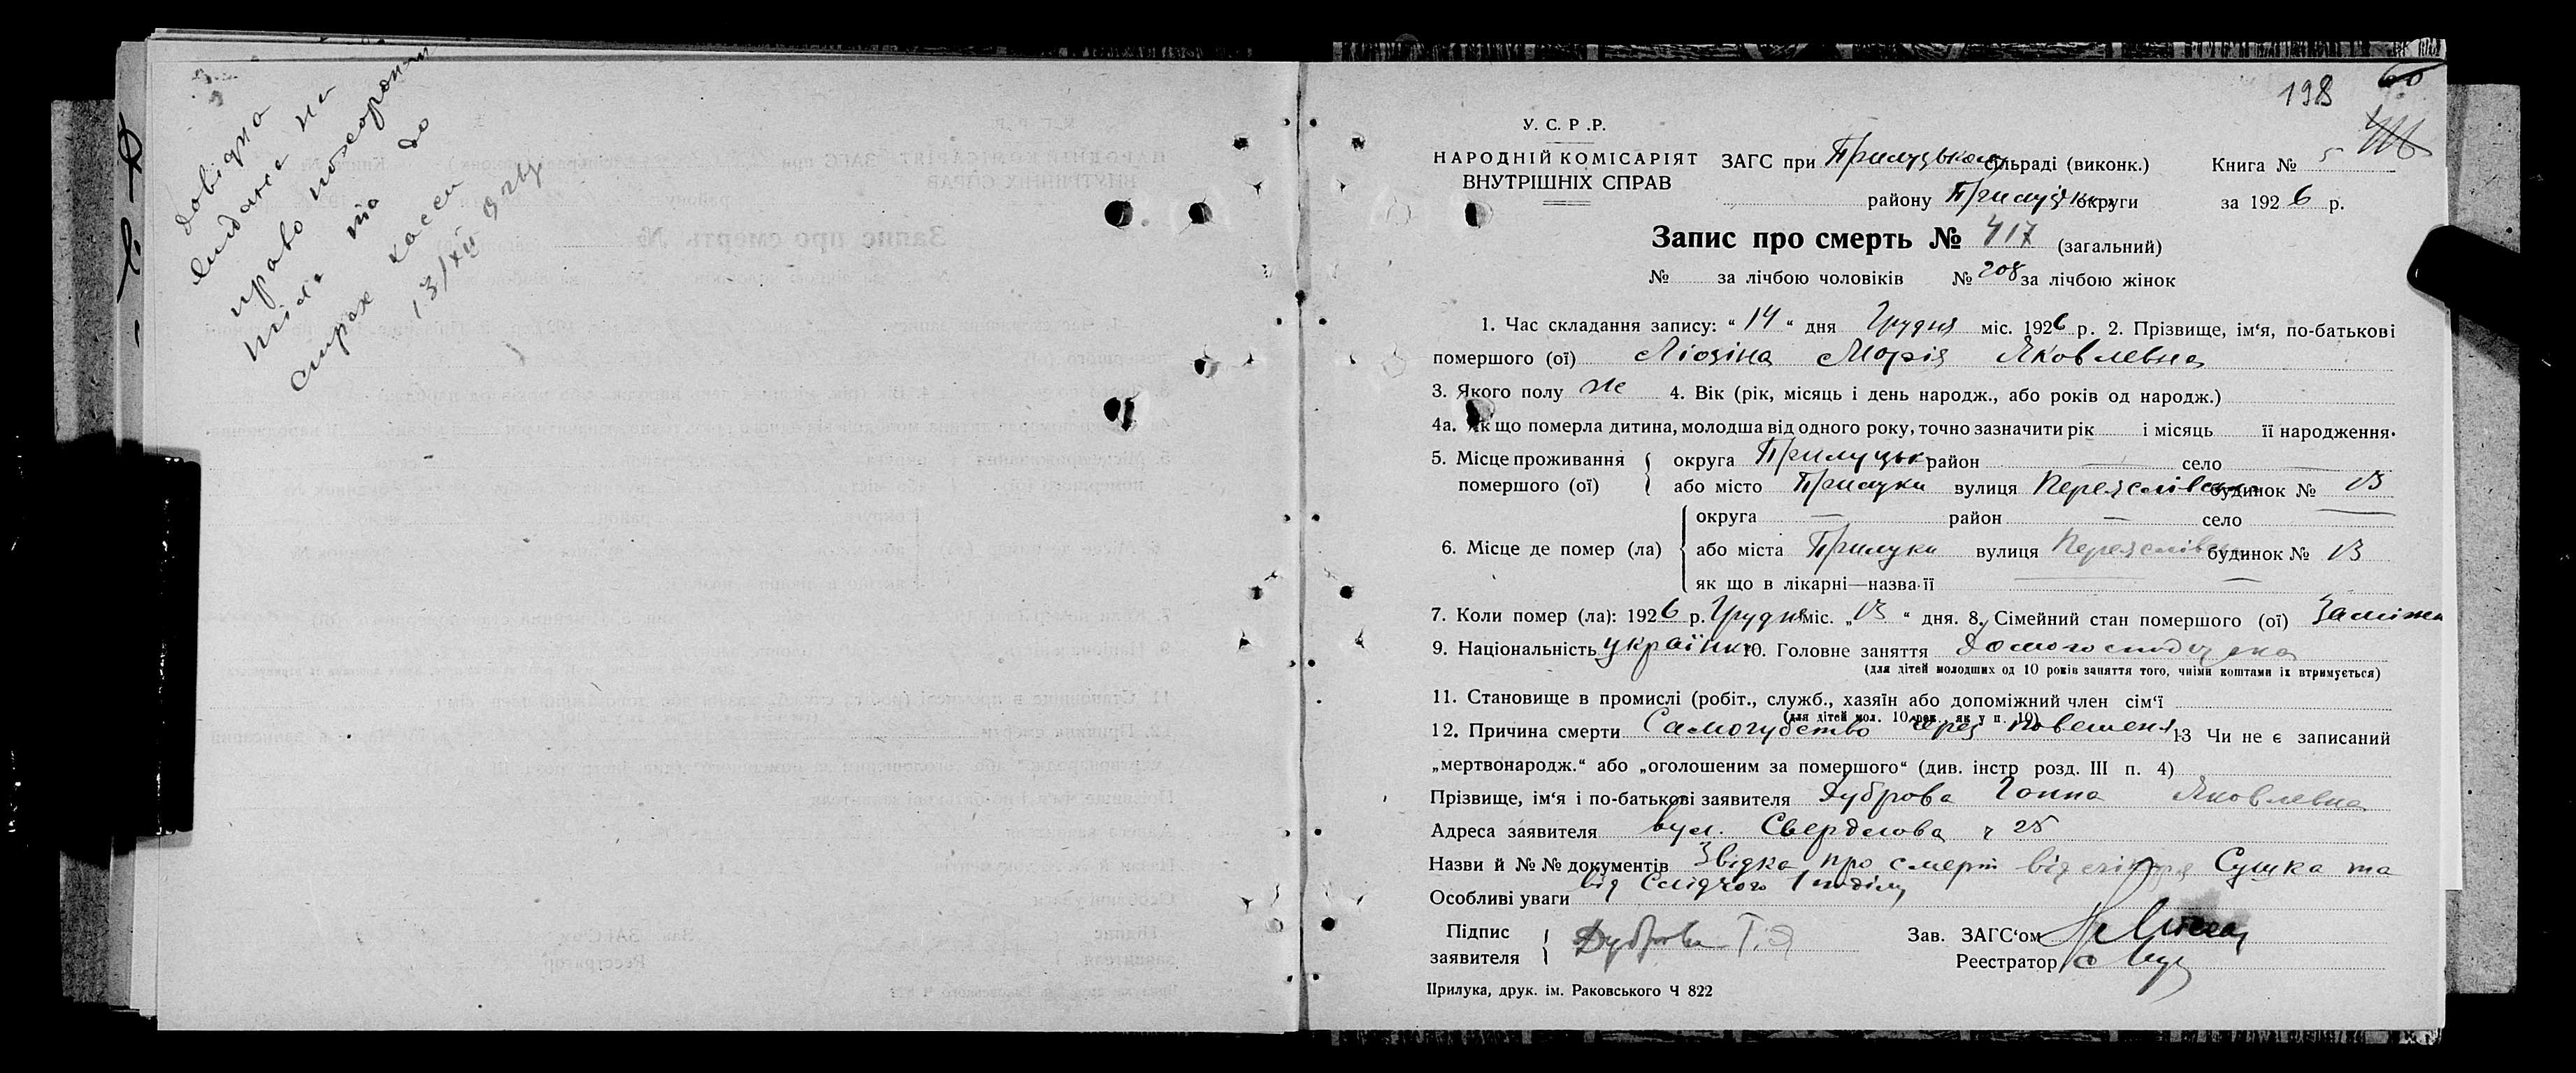 довідка
видана на
право похорони
тіла та до
страх касси
13/XII
198
У. С. Р. Р.
НАРОДНІЙ КОМІСАРІЯТ
ВНУТРІШНІХ СПРАВ
ЗАГС при Прилуцькому сільраді (виконк.) Книга № 5
району Прилуцької округи за 1926 р.
Запис про смерть № 417 (загальний)
№ за лічбою чоловіків № 208 за лічбою жінок
1. Час складання запису: “ 14 “ дня Грудня міс. 1926 р. 2. Прізвище, ім‘я, по-батькові
помершого (ої) Марія Яковлевна
3. Якого полу ж 4. Вік (рік, місяць і день народж., або років од народж.)
4а. Як що померла дитина, молодша від одного року, точно зазначити рік і місяць її народження.
5. Місце проживання помершого (ої) { округа Прилуцьк район — село —
або місто Прилуки вулиця Переяслівська будинок № 13
6. Місце де помер (ла) { округа — район — село —
або міста Прилуки вулиця Переяслівськ будинок № 13
як що в лікарні—назва її — —
7. Коли помер (ла): 1926 р. Грудня міс. „ 13 “ дня. 8. Сімейний стан помершого (ої) Заміжня
9. Національність українка 10. Головне заняття домогосподарка
(для дітей молодших од 10 років заняття того, чиїми коштами їх втримується)
11. Становище в промислі (робіт., служб., хазяїн або допоміжний член сім‘ї
(для дітей мол. 10 рок., як у п. 10)
12. Причина смерти Самогубство через повешеня 13 Чи не є записаний
„мертвонародж.“ або „оголошеним за помершого“ (див. інстр розд. III п. 4)
Прізвище, ім‘я і по-батькові заявителя Дуброва Ганна Яковлевна
Адреса заявителя вул. Свердлова ч 25
Назви й №№ документів Звідка про смерт від лікаря Сушка та
Особливі уваги від Слідчого 1 поділу
Підпис заявителя { Дуброва Г.Я
Зав. ЗАГС‘ом
Реестратор
Прилука, друк. ім. Раковського Ч 822